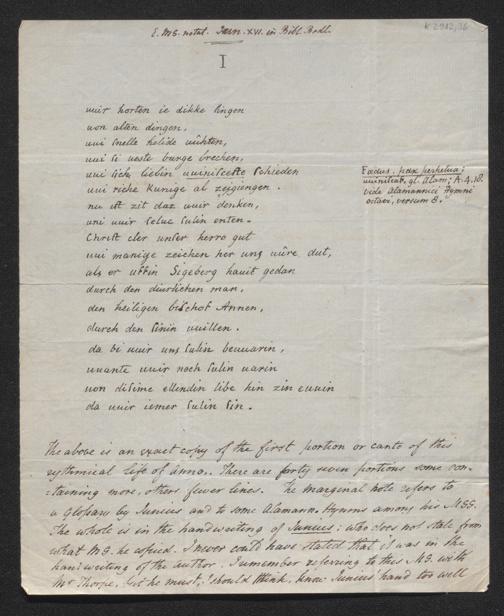 E. MS. notat. Jun. XVI. in Bibl. Bodl.
K 2912,36
I
wir horten ie dikke singen
von alten dingen,
wi snelle helide vuhten,
wi si veste burge brechen,
wi sich liebin winiscefte schieden
wi riche kunige al zegiengen.
nu ist zit daz wir denken,
wi wir selve sulin enten.
Christ der unser herro gut
wi manige zeichen her uns vure dut,
als er uffin Sigeberg havit gedan
durch den diurlichen man,
den heiligen bischof Annen,
durch den sinin willen.
da bi wir uns sulin bewarin,
wante wir noch sulin varin
von disime ellendin libe hin zin ewin
da wir iemer sulin sin.
Foedus, pax perpetua;
winiscaf, gl. Alam; A. 4. 18.
vide Alamannici Hymni
octavi, versum 8.
The above is an exact copy of the first portion or canto of this
rythmical life of Anno. There are forty seven portions some con-
taining more, others fewer lines. The marginal note refers to
a Glossary by Junius and to some Alamann. Hymns among his MSS.
The whole is in the handwriting of Junius: who does not state from
what MS. he copied. I never could have stated that it was in the
handwriting of the author. I remember referring to this MS. with
Mr Thorpe, but he must, I should think, know Junius' hand too well